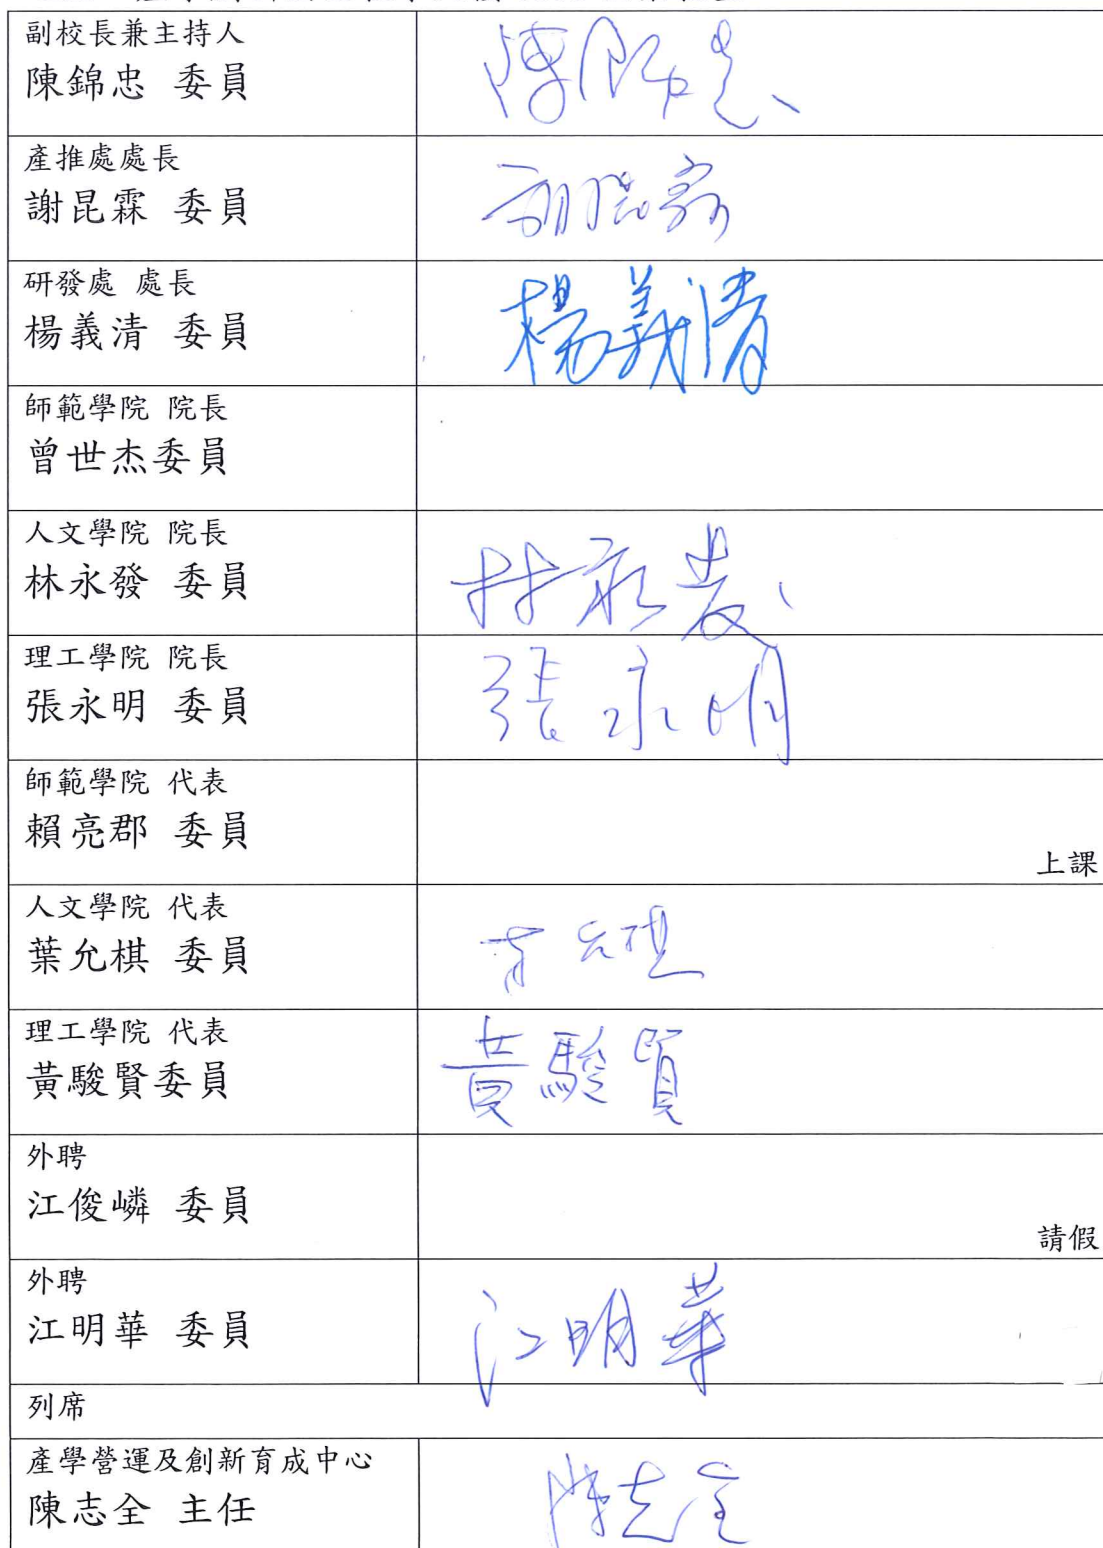 副校長兼主持人
陳錦忠 委員
陳錦忠
產推處處長
謝昆霖 委員
謝昆霖
研發處 處長
楊義清 委員
楊義清
師範學院 院長
曾世杰委員
人文學院 院長
林永發 委員
林永發
理工學院 院長
張永明 委員
張永明
師範學院 代表
賴亮郡 委員
上課
人文學院 代表
葉允棋 委員
葉允棋
理工學院 代表
黃駿賢委員
黃駿賢
外聘
江俊嶙 委員
請假
外聘
江明華 委員
江明華
列席
產學營運及創新育成中心
陳志全 主任
陳志全